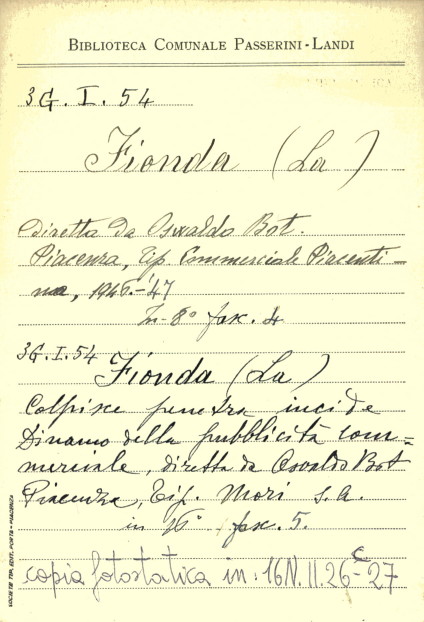 BIBLIOTECA COMUNALE PASSERINI-LANDI
3G. I. 54
Fionda (La)
Diretta da Oswaldo Bot.
Piacenza, Tip. Commerciale Piacenti-
na, 1946.-'47
In-8° fasc. 4
3G.I.54
Fionda (La)
Colpisce penetra incide
Dinamo della pubblicità com-
merciale, diretta da Osvaldo Bot
Piacenza, Tip. Mori s.a.
in 16° fasc. 5.
copia fotostatica in: 16N.II.26-27
SOCIETÀ TIP. EDIT. PORTA - PIACENZA